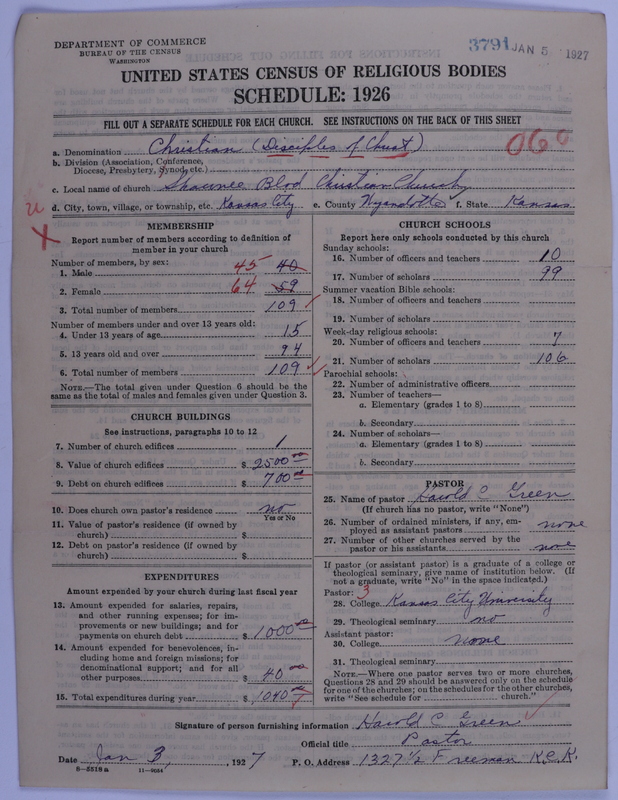 DEPARTMENT OF COMMERCE
BUREAU OF THE CENSUS
WASHINGTON
3791 JAN 5 1927
UNITED STATES CENSUS OF RELIGIOUS BODIES
SCHEDULE: 1926
FILL OUT A SEPARATE SCHEDULE FOR EACH CHURCH. SEE INSTRUCTIONS ON THE BACK OF THIS SHEET
a. Denomination Christian (Disciples of Christ) 060
b. Division (Association, Conference,
Diocese, Presbytery, Synod, etc.)
c. Local name of church Shawnee Blvd Christian Church
d. City, town, village, or township, etc. Kansas City e. County Wyandotte f. State Kansas
X
MEMBERSHIP
Report number of members according to definition of
member in your church
Number of members, by sex:
1. Male 45 40
2. Female 64 59
3. Total number of members 109
Number of members under and over 13 years old:
4. Under 13 years of age 15
5. 13 years old and over 94
6. Total number of members 109
NOTE.—The total given under Question 6 should be the
same as the total of males and females given under Question 3.
CHURCH BUILDINGS
See instructions, paragraphs 10 to 12
7. Number of church edifices 1
8. Value of church edifices $ 2500 00
9. Debt on church edifices $ 700 00
10. Does church own pastor's residence no
Yes or No
11. Value of pastor's residence (if owned by
church) $
12. Debt on pastor's residence (if owned by
church) $
EXPENDITURES
Amount expended by your church during last fiscal year
13. Amount expended for salaries, repairs,
and other running expenses; for im-
provements or new buildings; and for
payments on church debt $ 1000 00
14. Amount expended for benevolences, in-
cluding home and foreign missions; for
denominational support; and for all
other purposes $ 40 00
15. Total expenditures during year $ 1040
CHURCH SCHOOLS
Report here only schools conducted by this church
Sunday schools:
16. Number of officers and teachers 10
17. Number of scholars 99
Summer vacation Bible schools:
18. Number of officers and teachers
19. Number of scholars
Week-day religious schools:
20. Number of officers and teachers 7
21. Number of scholars 106
Parochial schools:
22. Number of administrative officers
23. Number of teachers—
a. Elementary (grades 1 to 8)
b. Secondary
24. Number of scholars—
a. Elementary (grades 1 to 8)
b. Secondary
PASTOR
25. Name of pastor Harold C Green
(If church has no pastor, write "None")
26. Number of ordained ministers, if any, em-
ployed as assistant pastors none
27. Number of other churches served by the
pastor or his assistants none
If pastor (or assistant pastor) is a graduate of a college or
theological seminary, give name of institution below. (If
not a graduate, write "No" in the space indicated.)
Pastor: 3
28. College Kansas City University
29. Theological seminary no
Assistant pastor:
30. College none
31. Theological seminary
NOTE.—Where one pastor serves two or more churches,
Questions 28 and 29 should be answered only on the schedule
for one of the churches; on the schedules for the other churches,
write "See schedule for church."
Signature of person furnishing information Harold C Green
Official title Pastor
Date Jan 3, 1927 P. O. Address 1327 1/2 Freeman K.C.K.
8-5518a 11-9684